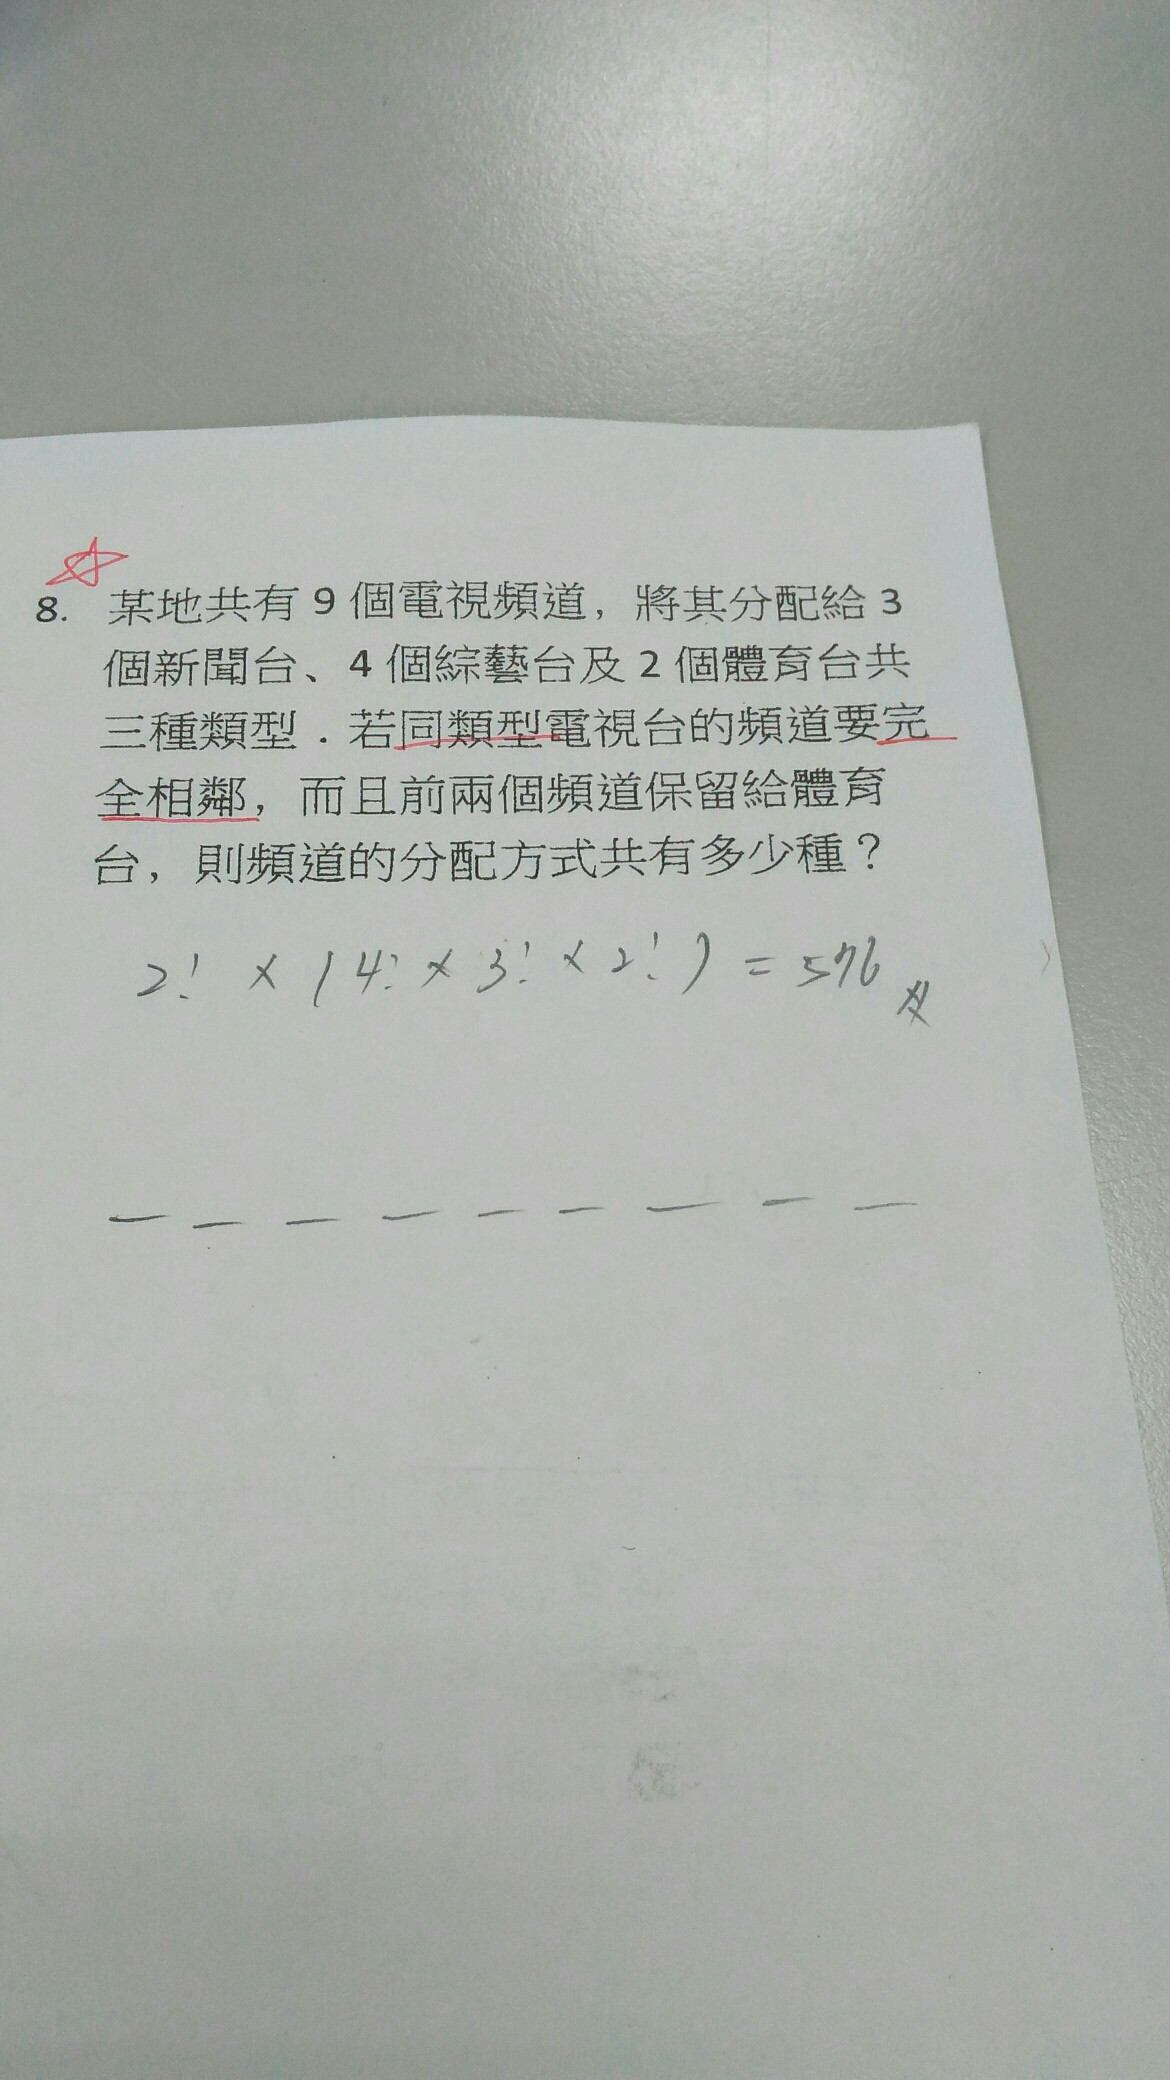 8. 某地共有 9 個電視頻道，將其分配給 3
個新聞台、4 個綜藝台及 2 個體育台共
三種類型．若同類型電視台的頻道要完
全相鄰，而且前兩個頻道保留給體育
台，則頻道的分配方式共有多少種？
2! × (4! × 3! × 2!) = 576